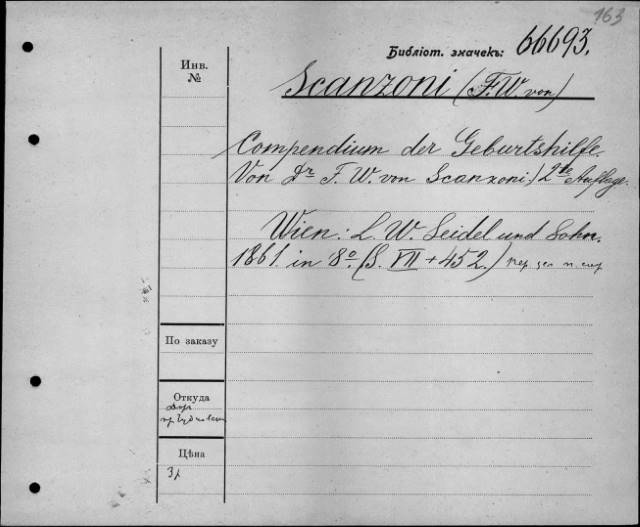 163
Библіот. значекъ: 66693.
Инв.
№
Scanzoni (F. W. von)
Compendium der Geburtshilfe.
Von Dr F. W. von Scanzoni) 2te Auflage.
Wien: L. W. Seidel und Sohn.
1861. in 8o. (S. VII + 452.)
По заказу
Откуда
Цѣна
3 р